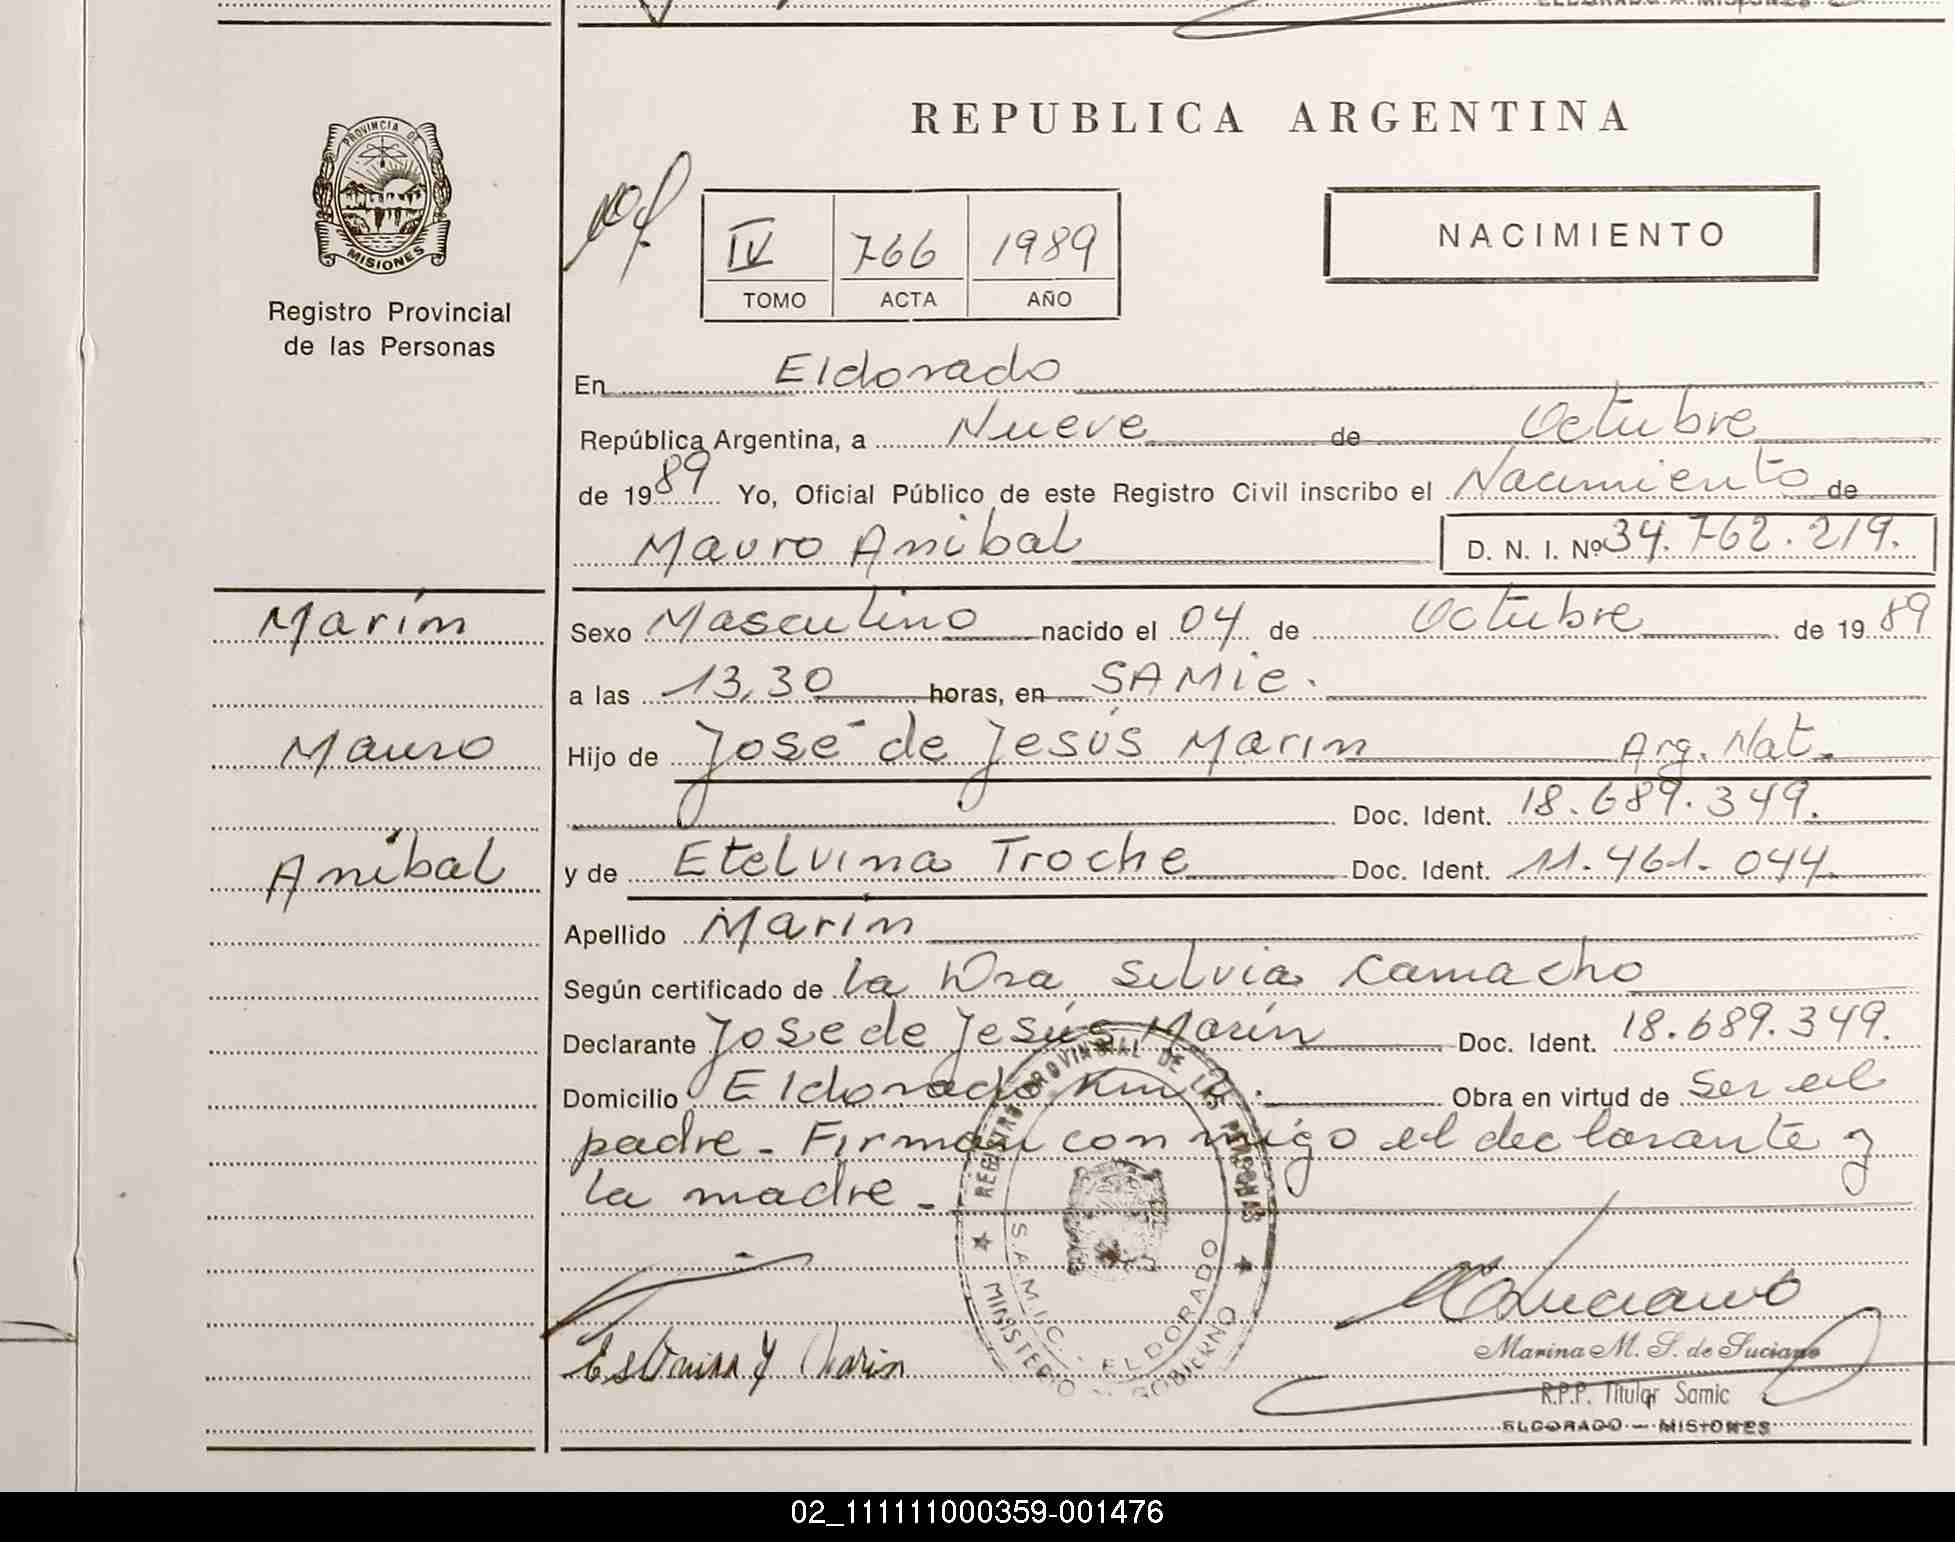 ELDORADO — MISIONES
PROVINCIA DE
MISIONES
Registro Provincial
de las Personas
REPUBLICA ARGENTINA
IV 766 1989
TOMO ACTA AÑO
NACIMIENTO
En Eldorado
República Argentina, a Nueve de Octubre
de 1989 Yo, Oficial Público de este Registro Civil inscribo el Nacimiento de
Mauro Anibal D. N. I. Nº 34.762.219.
Marín
Mauro
Anibal
Sexo Masculino nacido el 04 de Octubre de 1989
a las 13,30 horas, en SAMic.
Hijo de José de Jesús Marin Arg. Nat.
Doc. Ident. 18.689.349.
y de Etelvina Troche Doc. Ident. 11.461.044.
Apellido Marin
Según certificado de la Dra Silvia Camacho
Declarante Jose de Jesús Marín Doc. Ident. 18.689.349.
Domicilio Eldorado Km Obra en virtud de ser el
padre - Firman conmigo el declarante y
la madre -
REGISTRO PROVINCIAL DE LAS PERSONAS
S.A.M.I.C. - ELDORADO
MINISTERIO GOBIERNO
Marin
Marina M. S. de Luciano
R.P.P. Titular Samic
ELDORADO — MISIONES
02_111111000359-001476